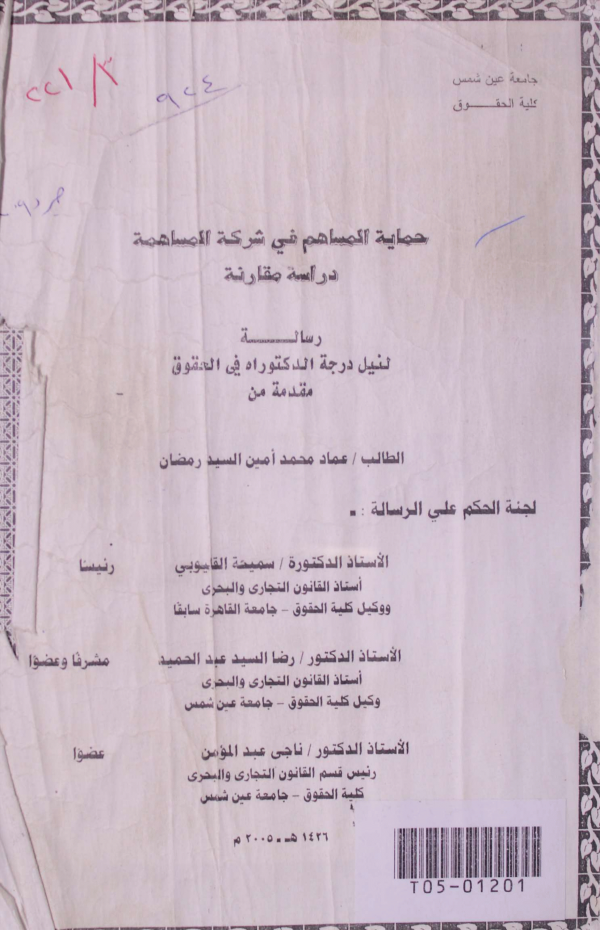 جامعة عين شمس
كلية الحقـــــوق
٢٢١ / ٣
٩٢٤
حماية المساهم في شركة المساهمة
دراسة مقارنة
رسالـــــــة
لنيل درجة الدكتوراه فى الحقوق
مقدمة من
الطالب / عماد محمد أمين السيد رمضان
لجنة الحكم علي الرسالة :
الأستاذ الدكتورة / سميحة القليوبي رئيسنا
أستاذ القانون التجارى والبحرى
ووكيل كلية الحقوق - جامعة القاهرة سابقا
الأستاذ الدكتور / رضا السيد عبد الحميد مشرفا وعضوا
أستاذ القانون التجارى والبحرى
وكيل كلية الحقوق - جامعة عين شمس
الأستاذ الدكتور / ناجى عبد المؤمن عضوا
رئيس قسم القانون التجارى والبحرى
كلية الحقوق - جامعة عين شمس
١٤٢٦ هـ - ٢٠٠٥ م
T05-01201